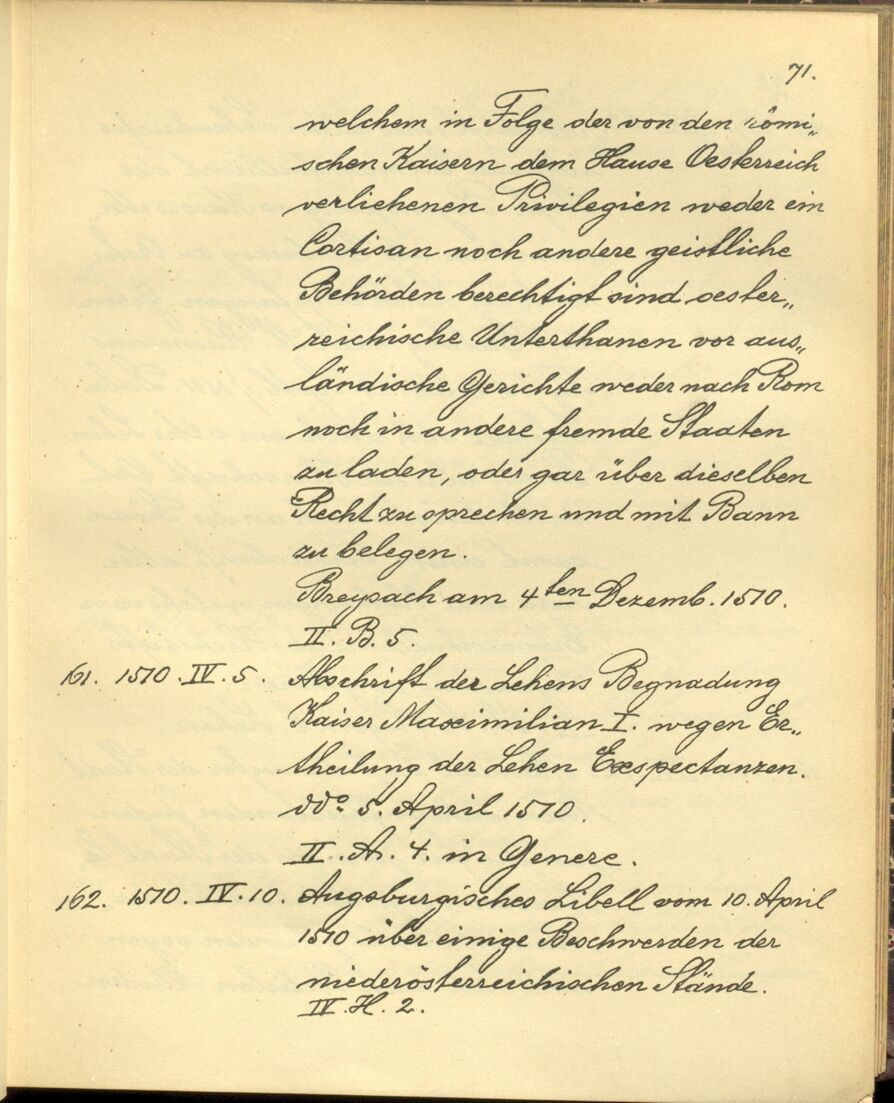 71.
welchem in Folge der von den römi„
schen Kaisern dem Hause Oesterreich
verliehenen Privilegien weder ein
Cortisan noch andere geistliche
Behörden berechtigt sind oester„
reichische Unterthanen vor aus„
ländische Gerichte weder nach Rom
noch in andere fremde Staaten
zu laden, oder gar über dieselben
Recht zu sprechen und mit Bann
zu belegen.
Breysach am 4ten Dezemb. 1510.
II. B. 5.
161. 1510. IV. 5. Abschrift der Lehens Begnadung
Kaiser Maximilian I. wegen Er„
theilung der Lehen Exspectanzen.
ddo 5. April 1510.
II. A. 4. in Genere.
162. 1510. IV. 10. Augsburgisches Libell vom 10. April
1510 über einige Beschwerden der
niederösterreichischen Stände.
IV. H. 2.